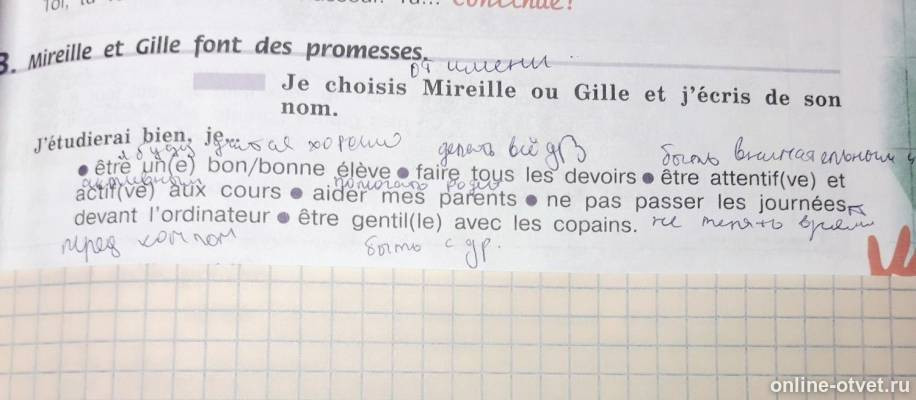 continue!
3. Mireille et Gille font des promesses.
от имени
Je choisis Mireille ou Gille et j'écris de son
nom.
J'étudierai bien, je...
хорошо
делать всё
быть
• être un(e) bon/bonne élève • faire tous les devoirs • être attentif(ve) et
помогать
actif(ve) aux cours • aider mes parents • ne pas passer les journées
devant l'ordinateur • être gentil(le) avec les copains.
не
перед
быть с др.
online-otvet.ru